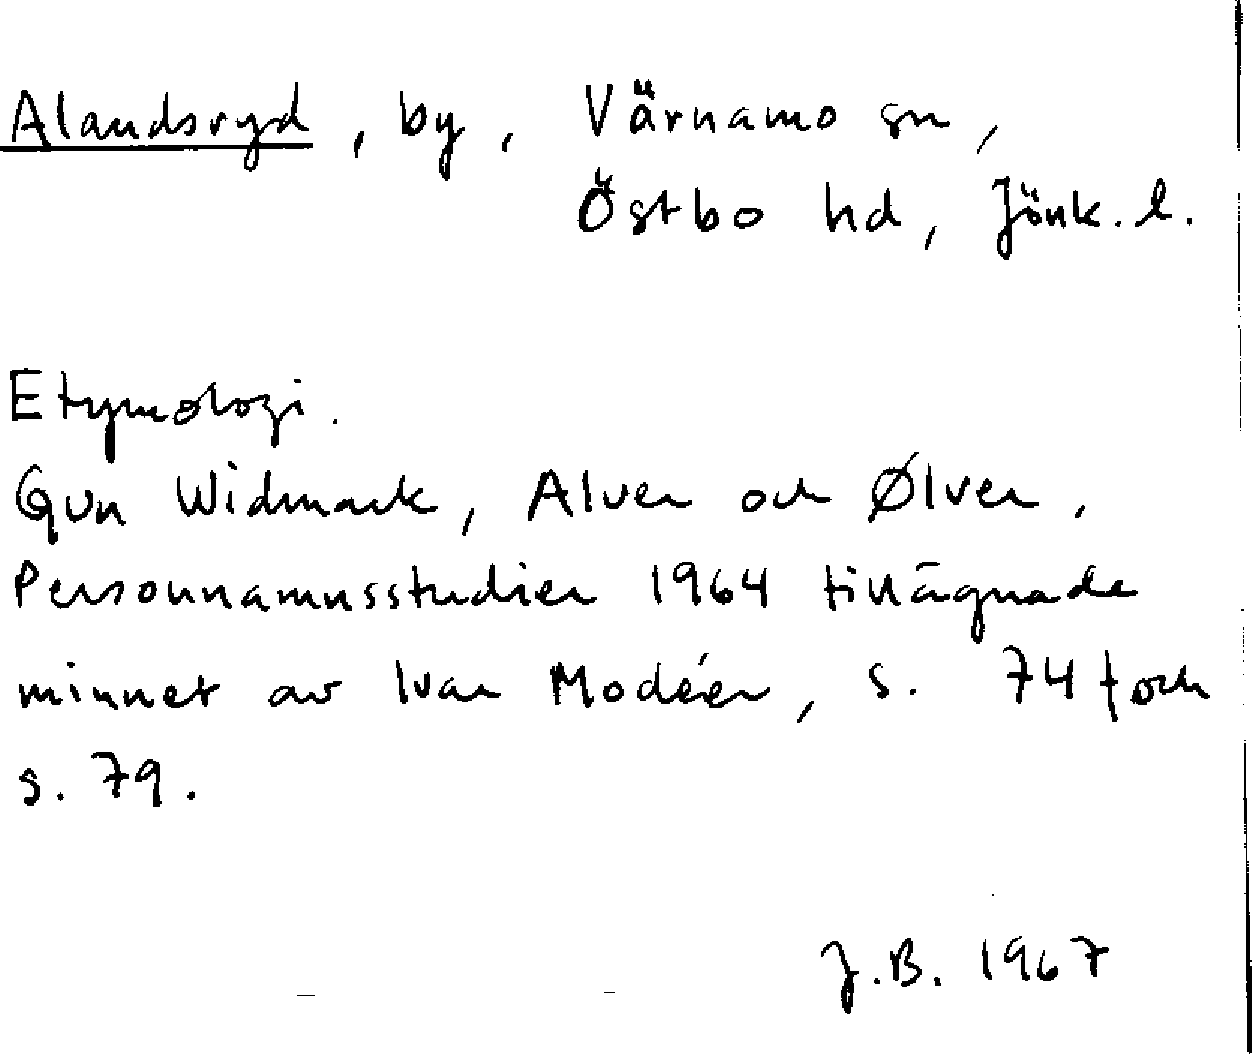 Alandsryd, by, Värnamo sn,
Östbo hd, Jönk. l.
Etymologi.
Gun Widmark, Alver och Ølver.
Personnamnsstudier 1964 tillägnade
minnet av Ivar Modéer, s. 74 f och
s. 79.
J.B. 1967